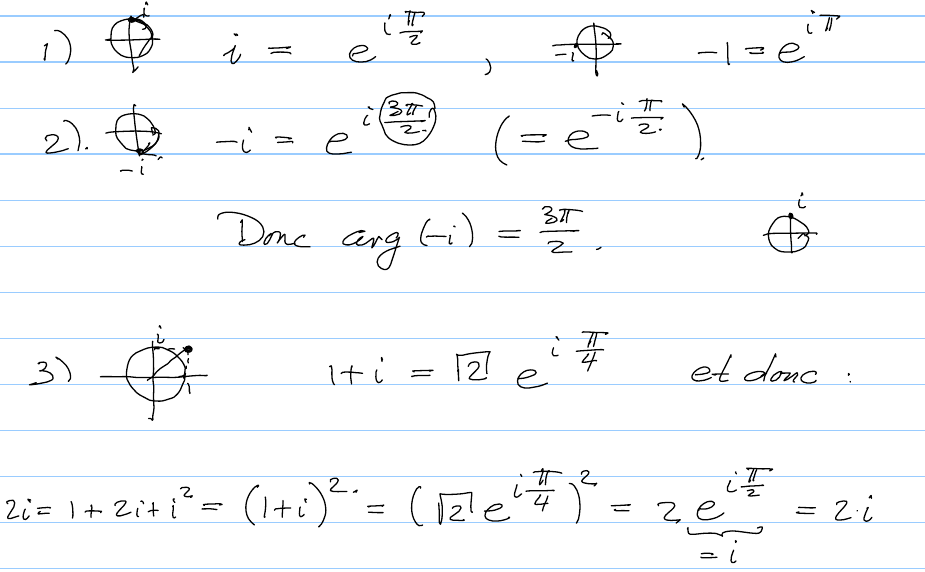 1) i i = e^{i π/2} , -1 -1 = e^{iπ}
2). -i -i = e^{i 3π/2.} (= e^{-i π/2.}).
Donc arg (-i) = 3π/2. i
3) i 1 1+i = √2 e^{i π/4} et donc :
2i = 1 + 2i + i^2 = (1+i)^2. = (√2 e^{i π/4})^2 = 2 e^{i π/2} = 2·i
= i